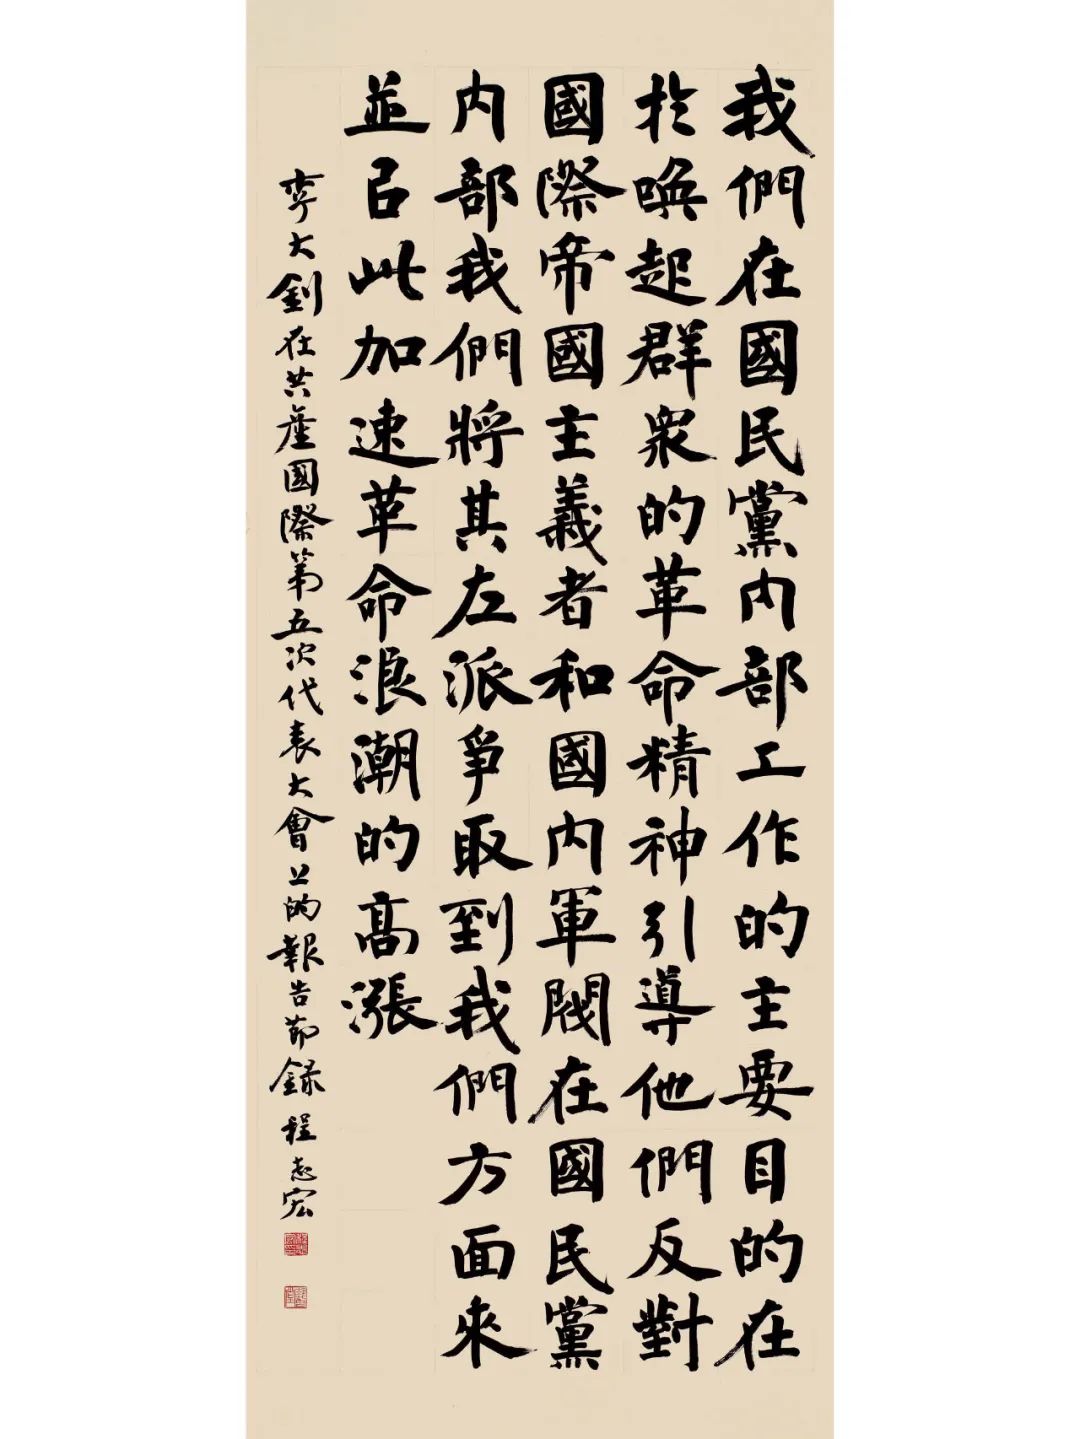 我們在國民黨内部工作的主要目的在
於喚起群衆的革命精神引導他們反對
國際帝國主義者和國内軍閥在國民黨
内部我們將其左派爭取到我們方面來
並㠯此加速革命浪潮的高漲
李大釗在共産國際第五次代表大會上的報告節録程志宏